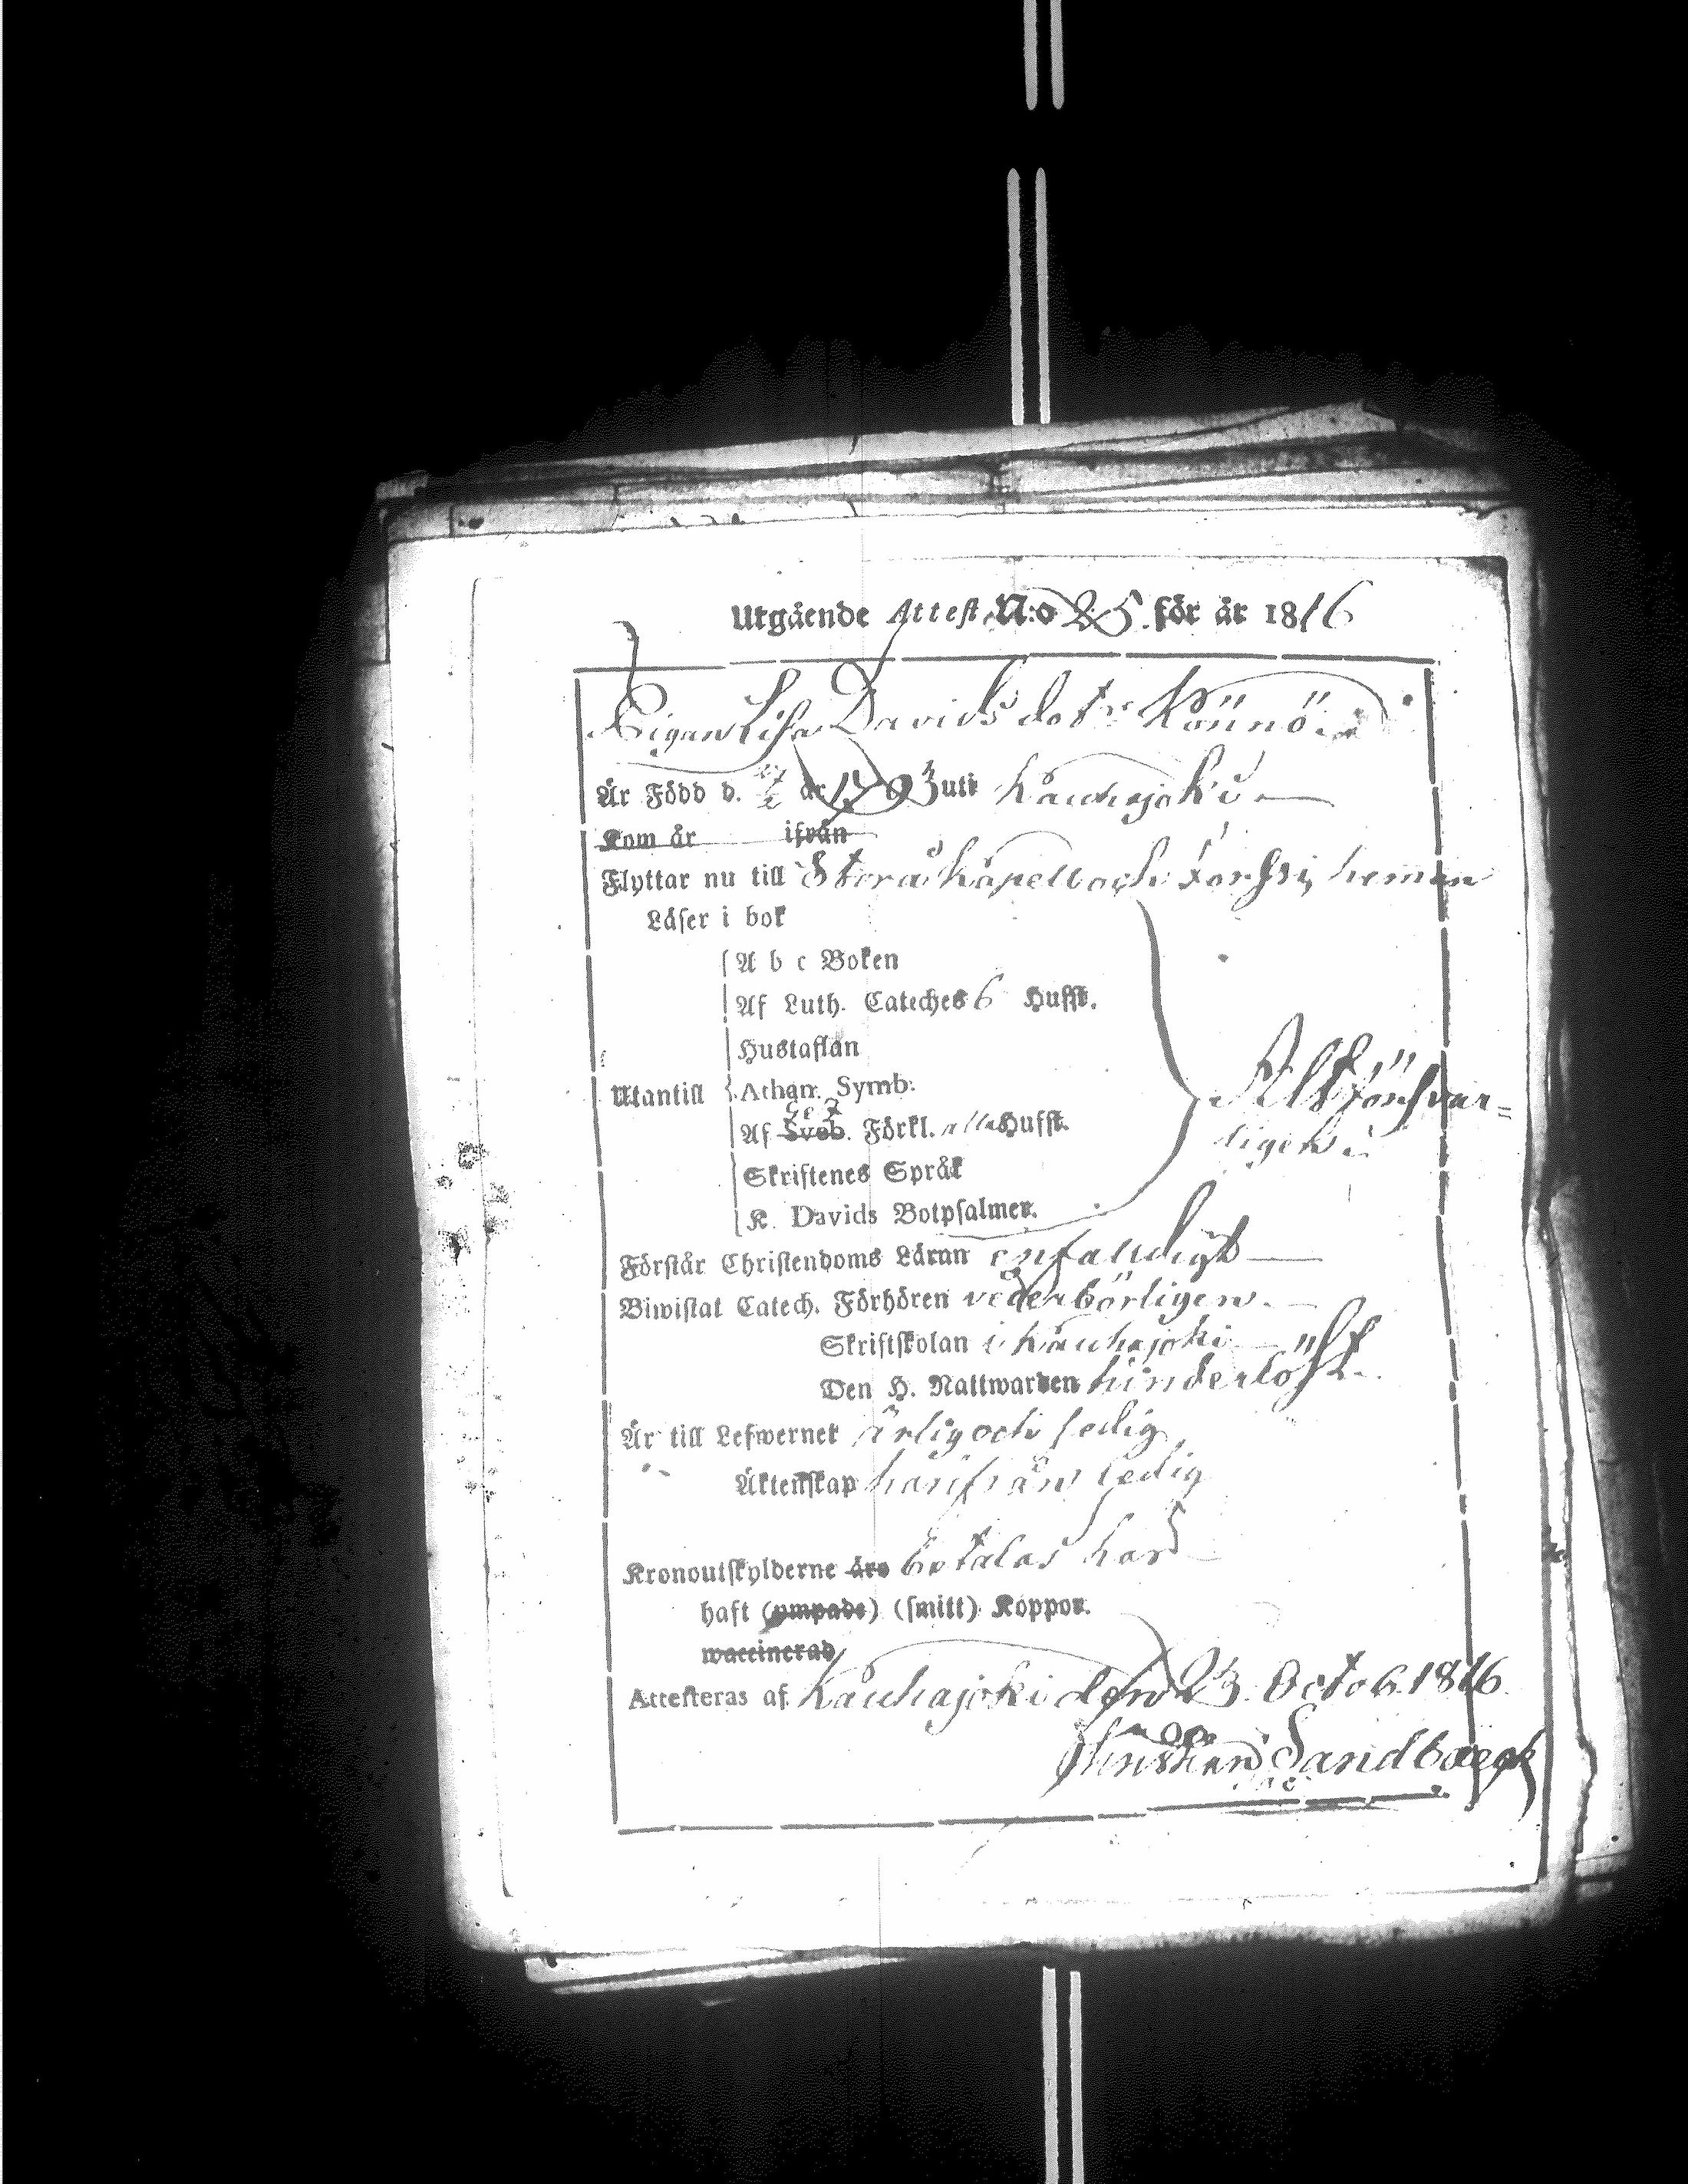 Utgående Attest N:o 25 för år 1816
Pigan Lisa Davidsdotr Könnö
Är Född d. år 1793 uti Kauhajoki
Kom år ifrån
Flyttar nu till Storå Kapell och Forssi hemman
Läser i bok
A b c Boken
Af Luth. Cateches 6 Hufst.
Hustaflan
Utantill Athan. Symb.
Af Sveb. Förkl. alla Hufst.
Skriftenes Språk
K. Davids Botpsalmer.
Förstår Christendoms Läran enfaldigt
Biwistat Catech. Förhören vederbörligen.
Skriftskolan i Kauhajoki
Den H. Nattwarden hinderlöst
Är till Lefwernet ärlig och sedig
Äktenskap härifrån ledig
Kronoutskylderne äro betalas har
haft (ympade) (smitt) Koppor.
waccinerad
Attesteras af Kauhajoki den 23 Octob. 1816
Sandbaeck